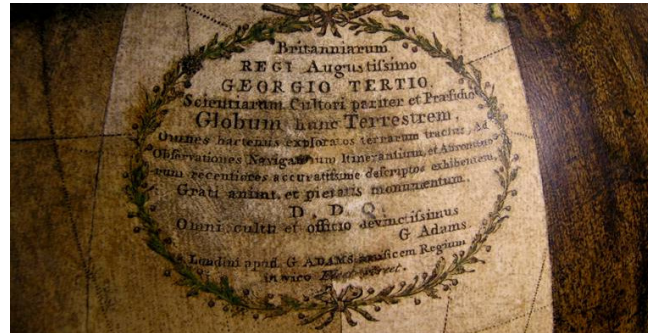 Britanniarum
REGI Augustiſsimo
GEORGIO TERTIO.
Scientiarum Cultori pariter et Præſidio
Globum hunc Terrestrem,
Omnes hactenus exploratos terrarum tractus, Ad
Obſervationes Navigantium Itinerantium, et Astronomo
rum recentiores accuratiſsime deſcriptos exhibentem,
Grati animi, et pietatis monumentum.
D. D. Q.
Omni cultu et officio devinctiſsimus
G Adams.
Londini apud G ADAMS Artificem Regium
in vico Fleet street.